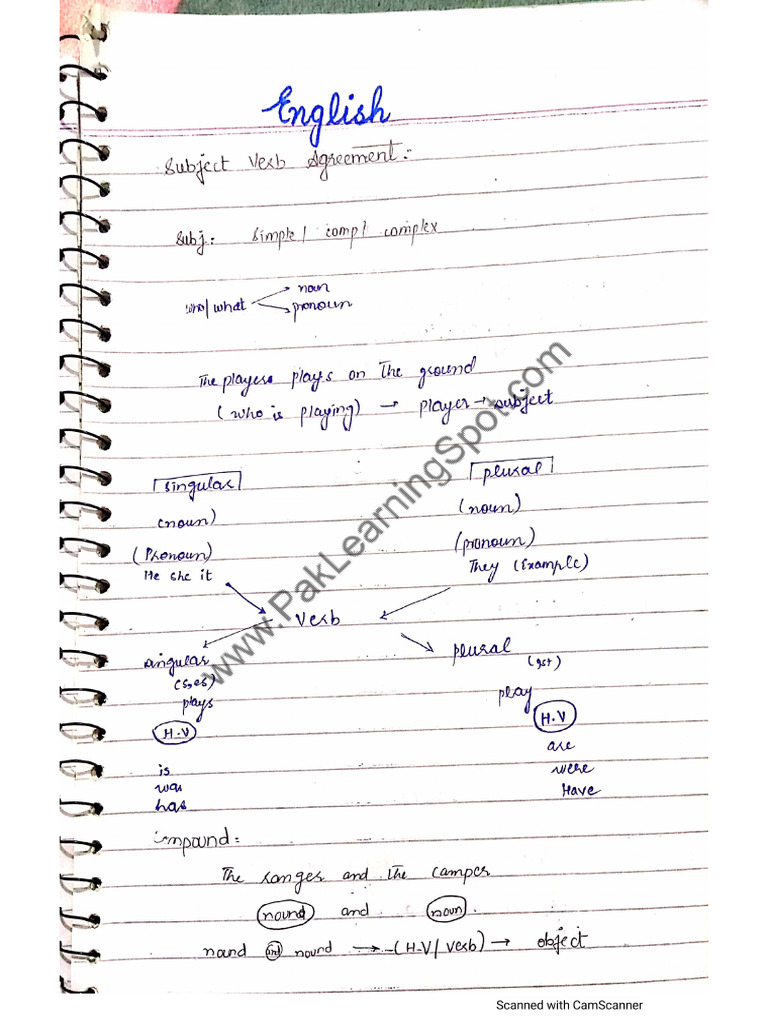 English
Subject Verb Agreement:-
Subj: Simple / comp / complex
who/what
noun
pronoun
The players plays on the ground
(who is playing) → player → subject
singular
plural
(noun)
(noun)
(Pronoun)
(pronoun)
He she it
They (Example)
Verb
singular
plural
(s,es)
(1st)
plays
play
H.V
H.V
is
are
was
were
has
Have
compound:
The ranger and the camper
nound and noun.
nound and nound → (H-V/Verb) → object
www.PakLearningSpot.com
Scanned with CamScanner